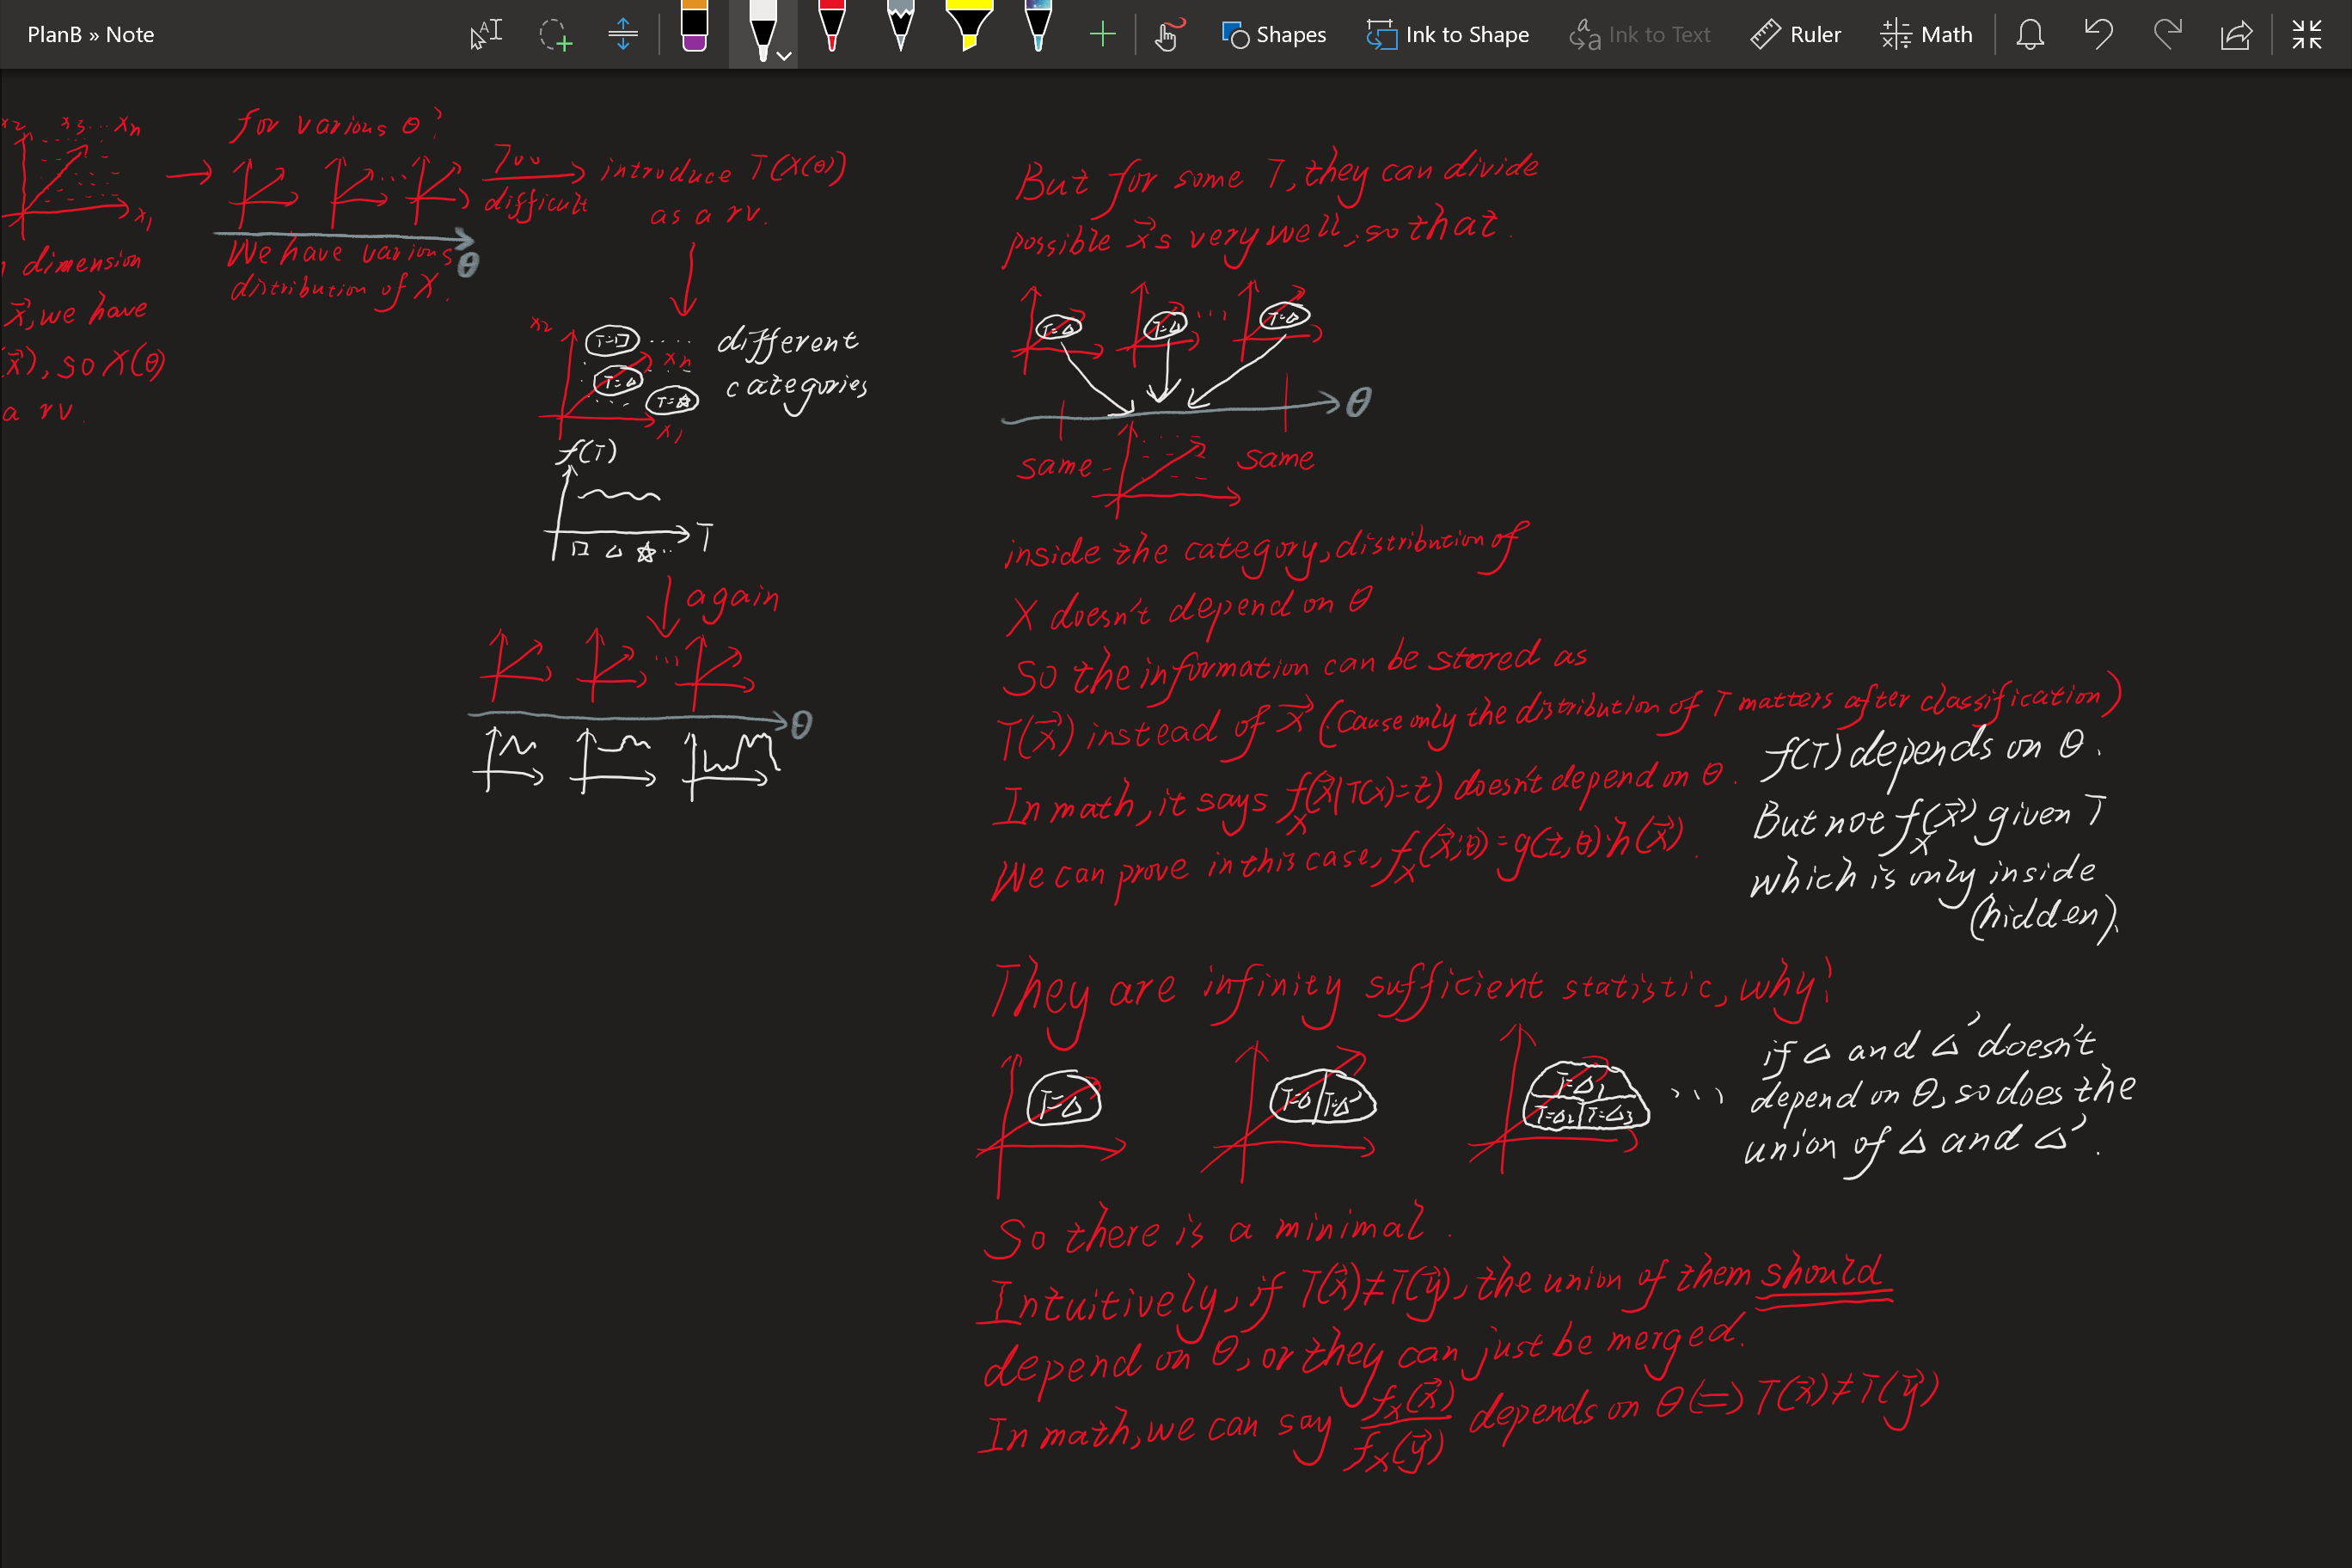 PlanB » Note
Shapes
Ink to Shape
Ink to Text
Ruler
Math
x2 x3... xn
x1
n dimension
x⃗, we have
(x⃗), so X(θ)
a rv.
for various θ?
θ
We have various
distribution of X.
Too
difficult
introduce T(X(θ))
as a rv.
x2
T=□ ....
xn
T=△
T=☆
x1
different
categories
f(T)
T
□ △ ☆..
again
...
θ
But for some T, they can divide
possible x⃗s very well, so that.
T=△ T=△ ... T=△
θ
same same
inside the category, distribution of
X doesn't depend on θ
So the information can be stored as
T(x⃗) instead of x⃗ (Cause only the distribution of T matters after classification)
In math, it says f_X(x⃗|T(x)=t) doesn't depend on θ.
We can prove in this case, f_X(x⃗;θ)=g(t,θ)·h(x⃗).
f(T) depends on θ.
But not f_X(x⃗) given T
which is only inside
(hidden).
They are infinity sufficient statistic, why?
T=△
T=△ T=△'
T=△1
T=△2 T=△3
...
if △ and △' doesn't
depend on θ, so does the
union of △ and △'.
So there is a minimal.
Intuitively, if T(x⃗)≠T(y⃗), the union of them should
depend on θ, or they can just be merged.
In math, we can say f_X(x⃗)/f_X(y⃗) depends on θ(=) T(x⃗)≠T(y⃗)